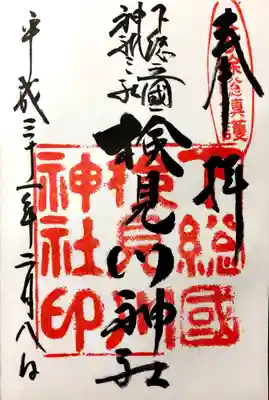 奉拝
下総之國
神祇三社
検見川神社
平成三十一年二月八日
下総國
検見川
神社印